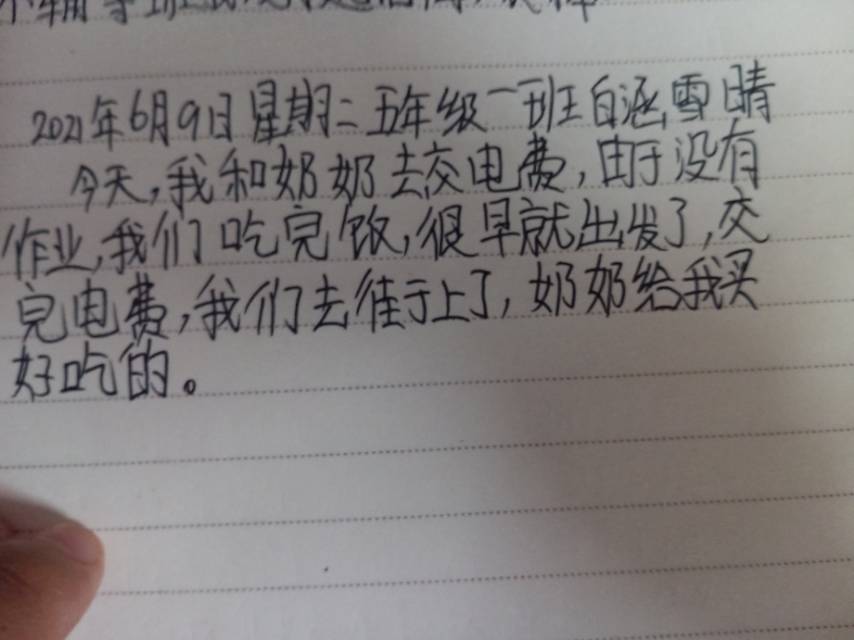 2021年6月9日星期二五年级一班白涵雪晴
今天,我和奶奶去交电费,由于没有
作业,我们吃完饭,很早就出发了,交
完电费,我们去街上了,奶奶给我买
好吃的。